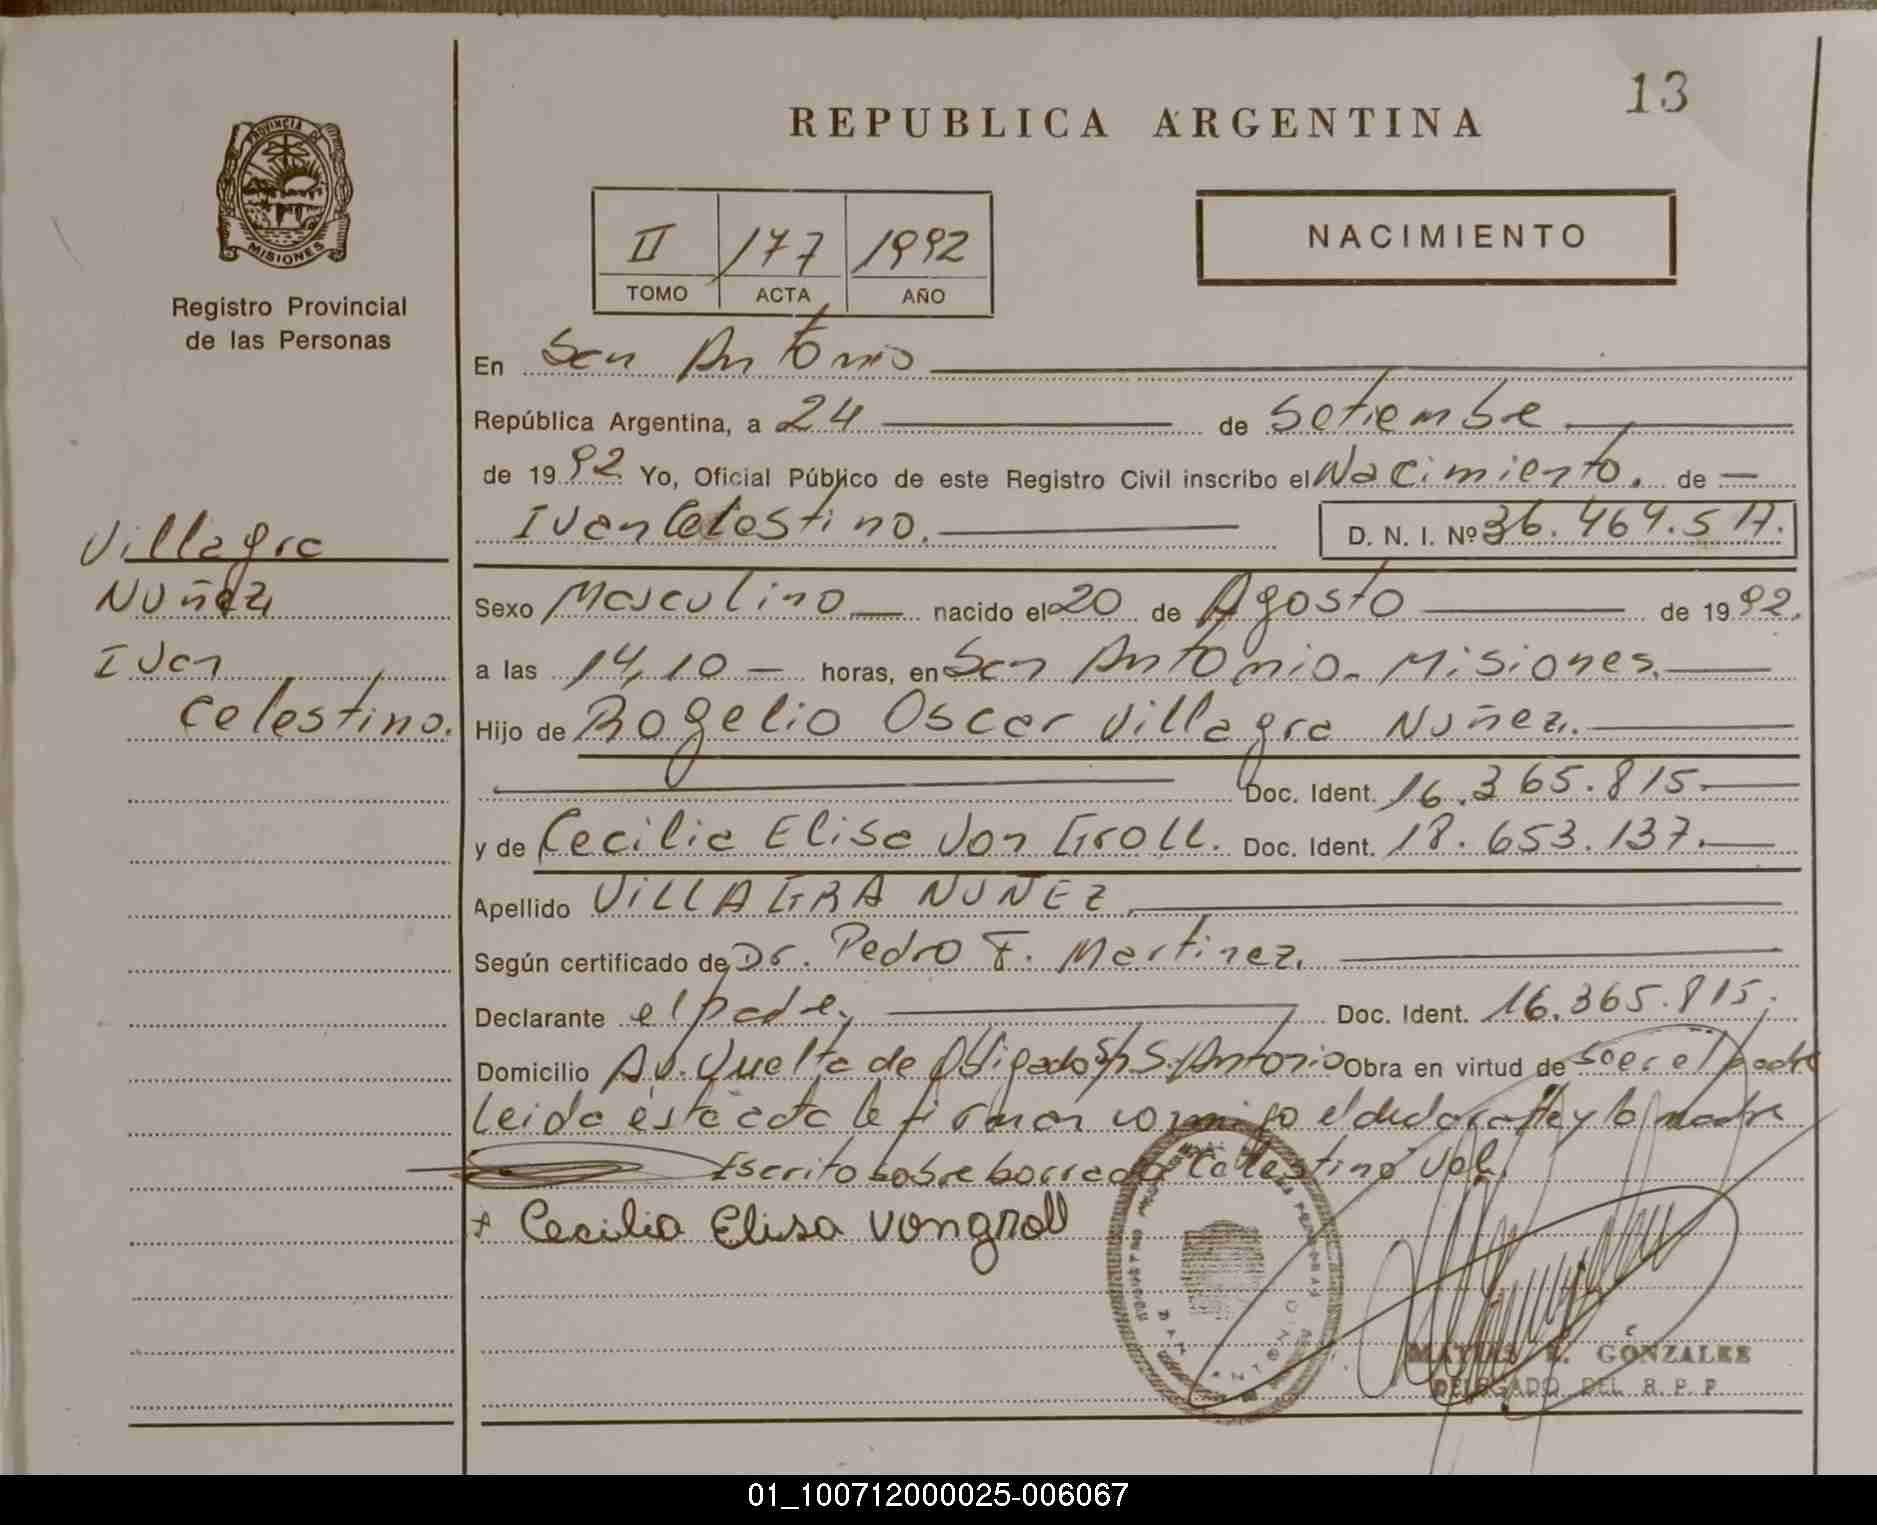 13
REPUBLICA ARGENTINA
PROVINCIA DE
MISIONES
Registro Provincial
de las Personas
NACIMIENTO
II 177 1992
TOMO ACTA AÑO
En San Antonio
República Argentina, a 24 de Setiembre
de 1992 Yo, Oficial Público de este Registro Civil inscribo el Nacimiento. de
Ivan Celestino. D. N. I. Nº 36.464.517.
Villagra
Nuñez,
Ivan
Celestino.
Sexo Masculino nacido el 20 de Agosto de 1992.
a las 14,10 horas, en San Antonio. Misiones.
Hijo de Rogelio Oscar Villagra Nuñez.
Doc. Ident. 16.365.815.
y de Cecilia Elisa Von Groll. Doc. Ident. 18.653.137.
Apellido VILLAGRA NUÑEZ
Según certificado de Dr. Pedro F. Martinez.
Declarante el padre, Doc. Ident. 16.365.815.
Domicilio Av. Vuelta de Obligado S/n S. Antonio Obra en virtud de ser el padre
leida ésta acta la firman conmigo el declarante y la madre
Escrito sobre borrado Celestino Vale.
x Cecilia Elisa vongroll
SAN ANTONIO
MATIAS E. GONZALEZ
DELEGADO DEL R. P. P.
01_100712000025-006067